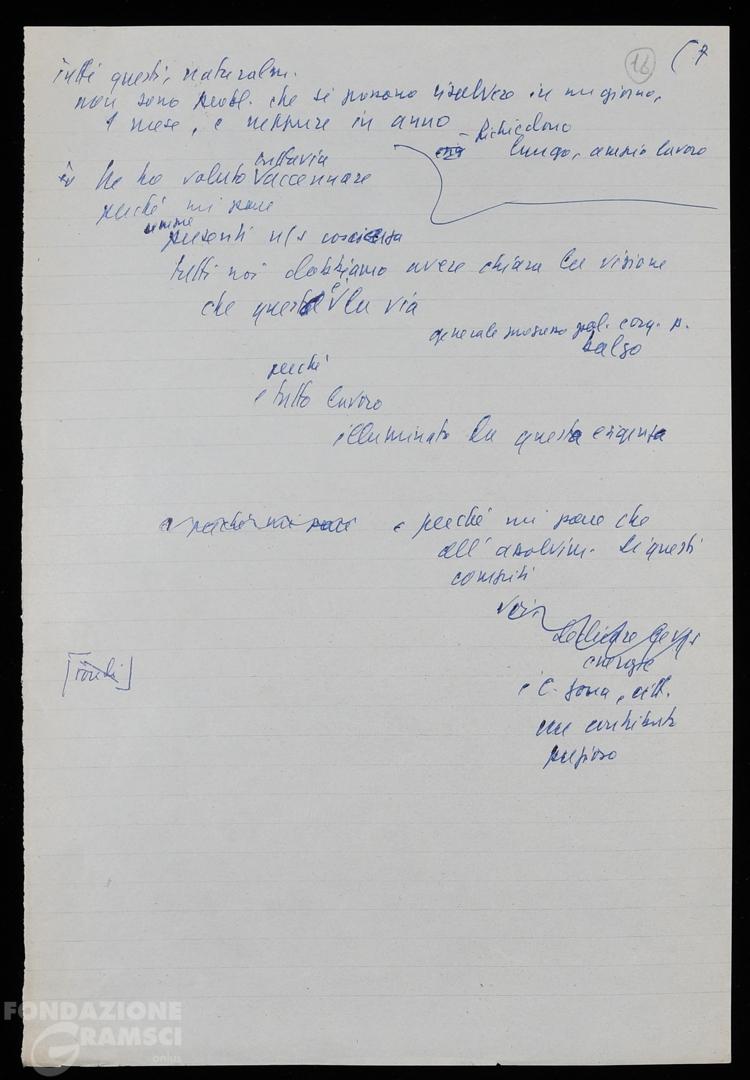 16 (7
Tutti questi, naturalm.
non sono probl. che si possono risolvere in un giorno,
1 mese, e neppure in anno
- Richiedono
lungo, ampio lavoro
tuttavia
Ne ho voluto accennare
perché mi pare
presenti n/s coscienza
tutti noi dobbiamo avere chiara la visione
che questa è la via
generale
salso
perché
e tutto lavoro
illuminato da questa esigenza
e perché mi pare
e perché mi pare che
all'assolvim. di questi
compiti
voi
energie
e C. fona, citt.
un contributo
prezioso
[Fondi]
FONDAZIONE
GRAMSCI
onlus